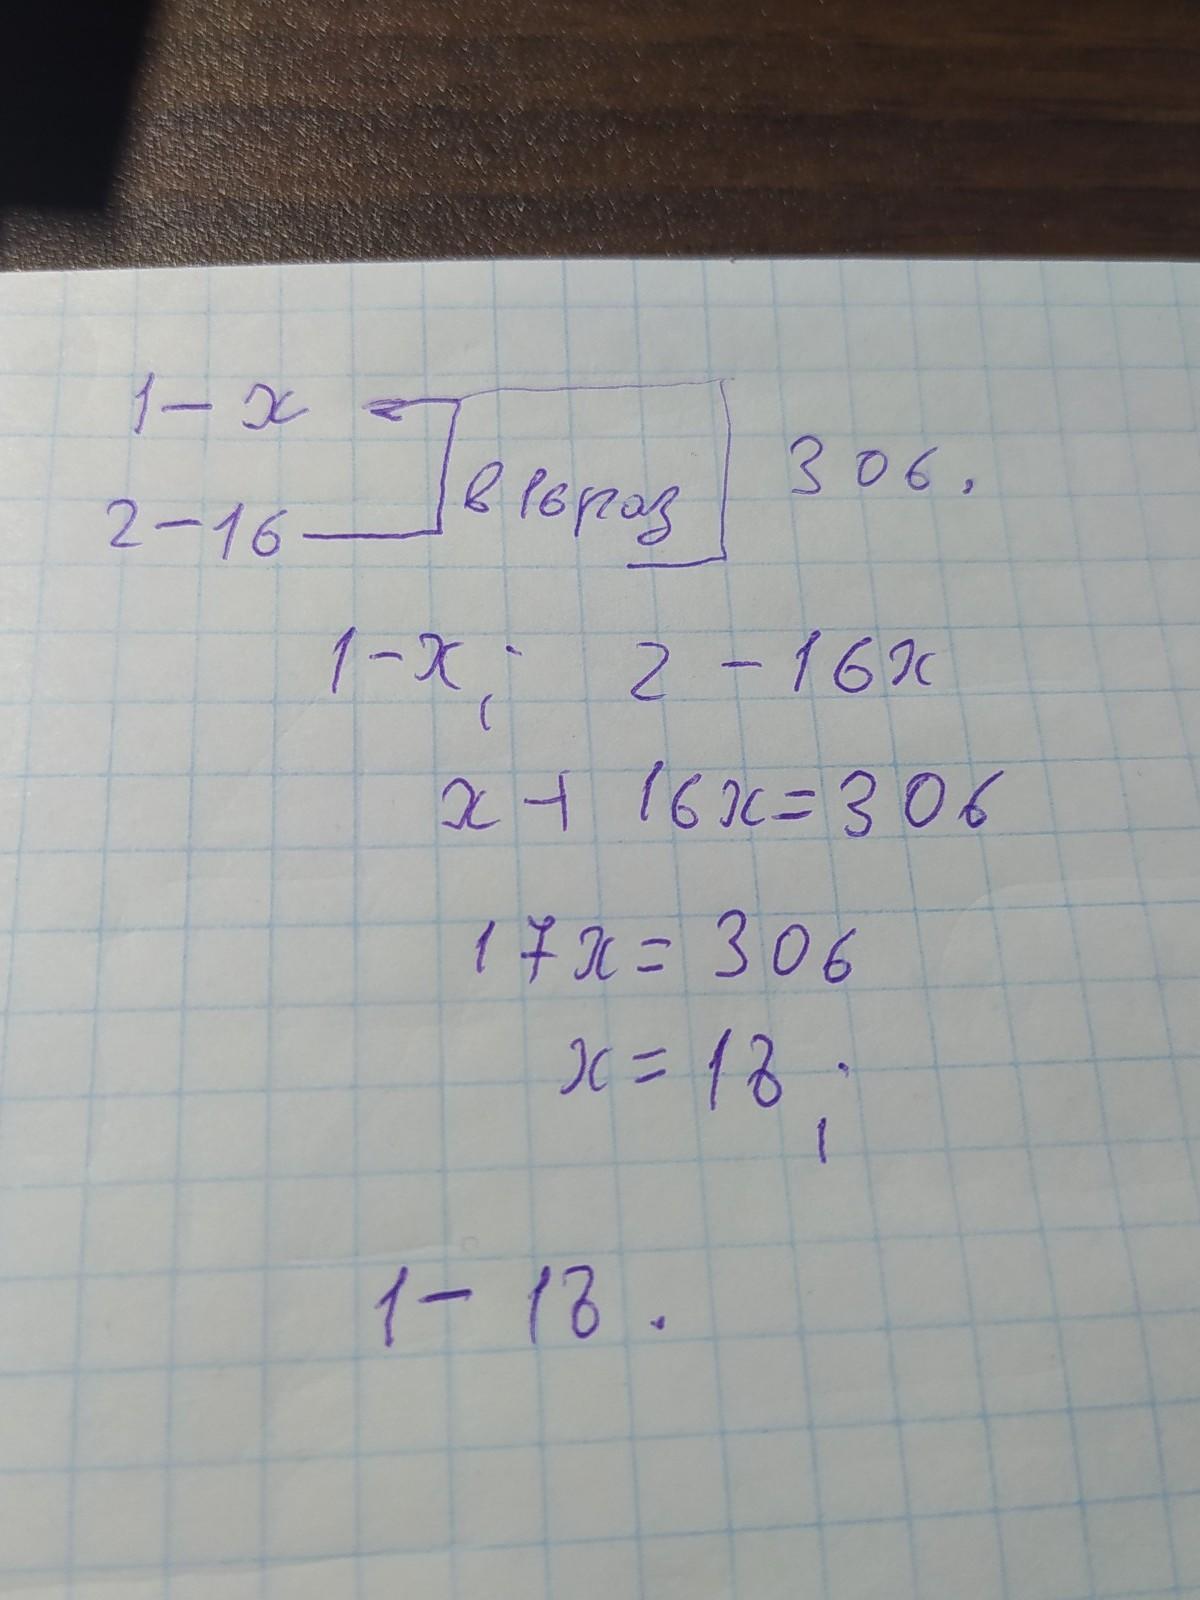 1 – x
306.
2 – 16
в 16 раз
1 – x; 2 – 16x
x + 16x = 306
17x = 306
x = 18;
1 – 18.